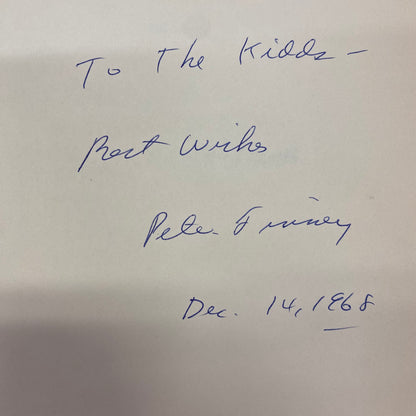 To The Kidds –
Best Wishes
Pete Finney
Dec. 14, 1968